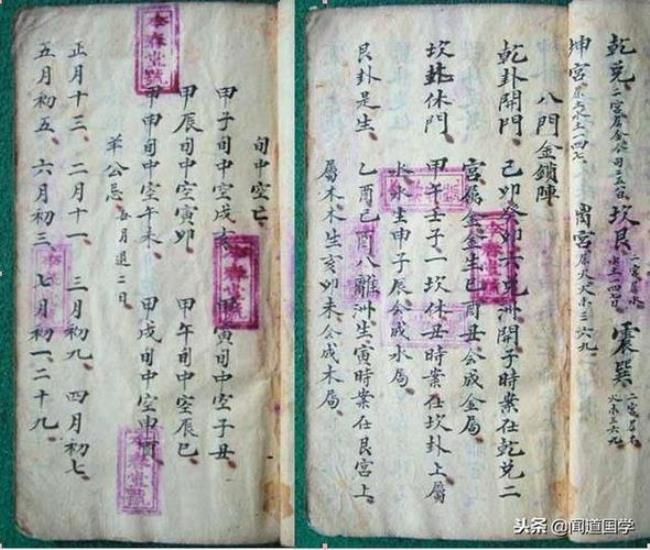 乾兑 坎艮 震巽
坤宮
八門金鎖陣
乾卦開門、己卯癸卯六兑洲開子時業在乾兑二
宮屬金金生巳酉丑会成金局、
坎卦休門、甲午壬子一坎休丑時業在坎卦上屬
水水生申子辰会成水局
艮卦是生、乙酉己酉八離洲生寅時業在艮宮上、
屬木木生亥卯未会成木局、
旬中空亡、
甲子旬中空戌亥 甲寅旬中空子丑
甲辰旬中空寅卯 甲午旬中空辰巳
甲申旬中空午未、 甲戌旬中空申
羊公忌、每月退二日
正月十三、二月十一、三月初九、四月初七、
五月初五、六月初三、七月初一、二十九、
头条 @闻道国学